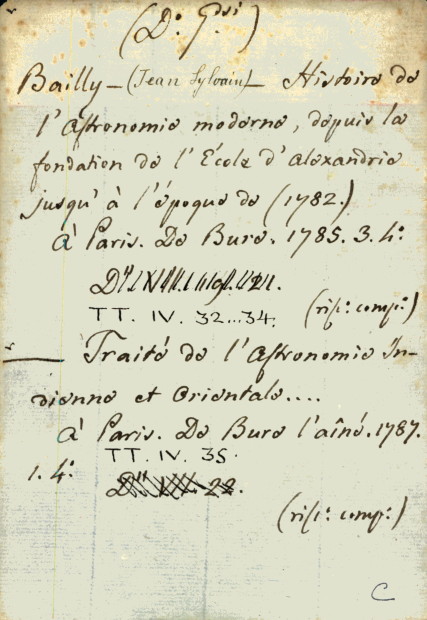 (D.º G.ssi)
Bailly - (Jean Sylvain) - Histoire de
l'Astronomie moderne, depuis la
fondation de l'École d'Alexandrie
jusqu'à l'époque de (1782.)
À Paris. De Bure. 1785. 3. 4.º
TT. IV. 32...34.
(risc.º comp.º)
— Traité de l'Astronomie In-
dienne et Orientale....
À Paris. De Bure l'aîné. 1787.
1. 4.º
TT. IV. 35.
(risc.º comp.º)
C